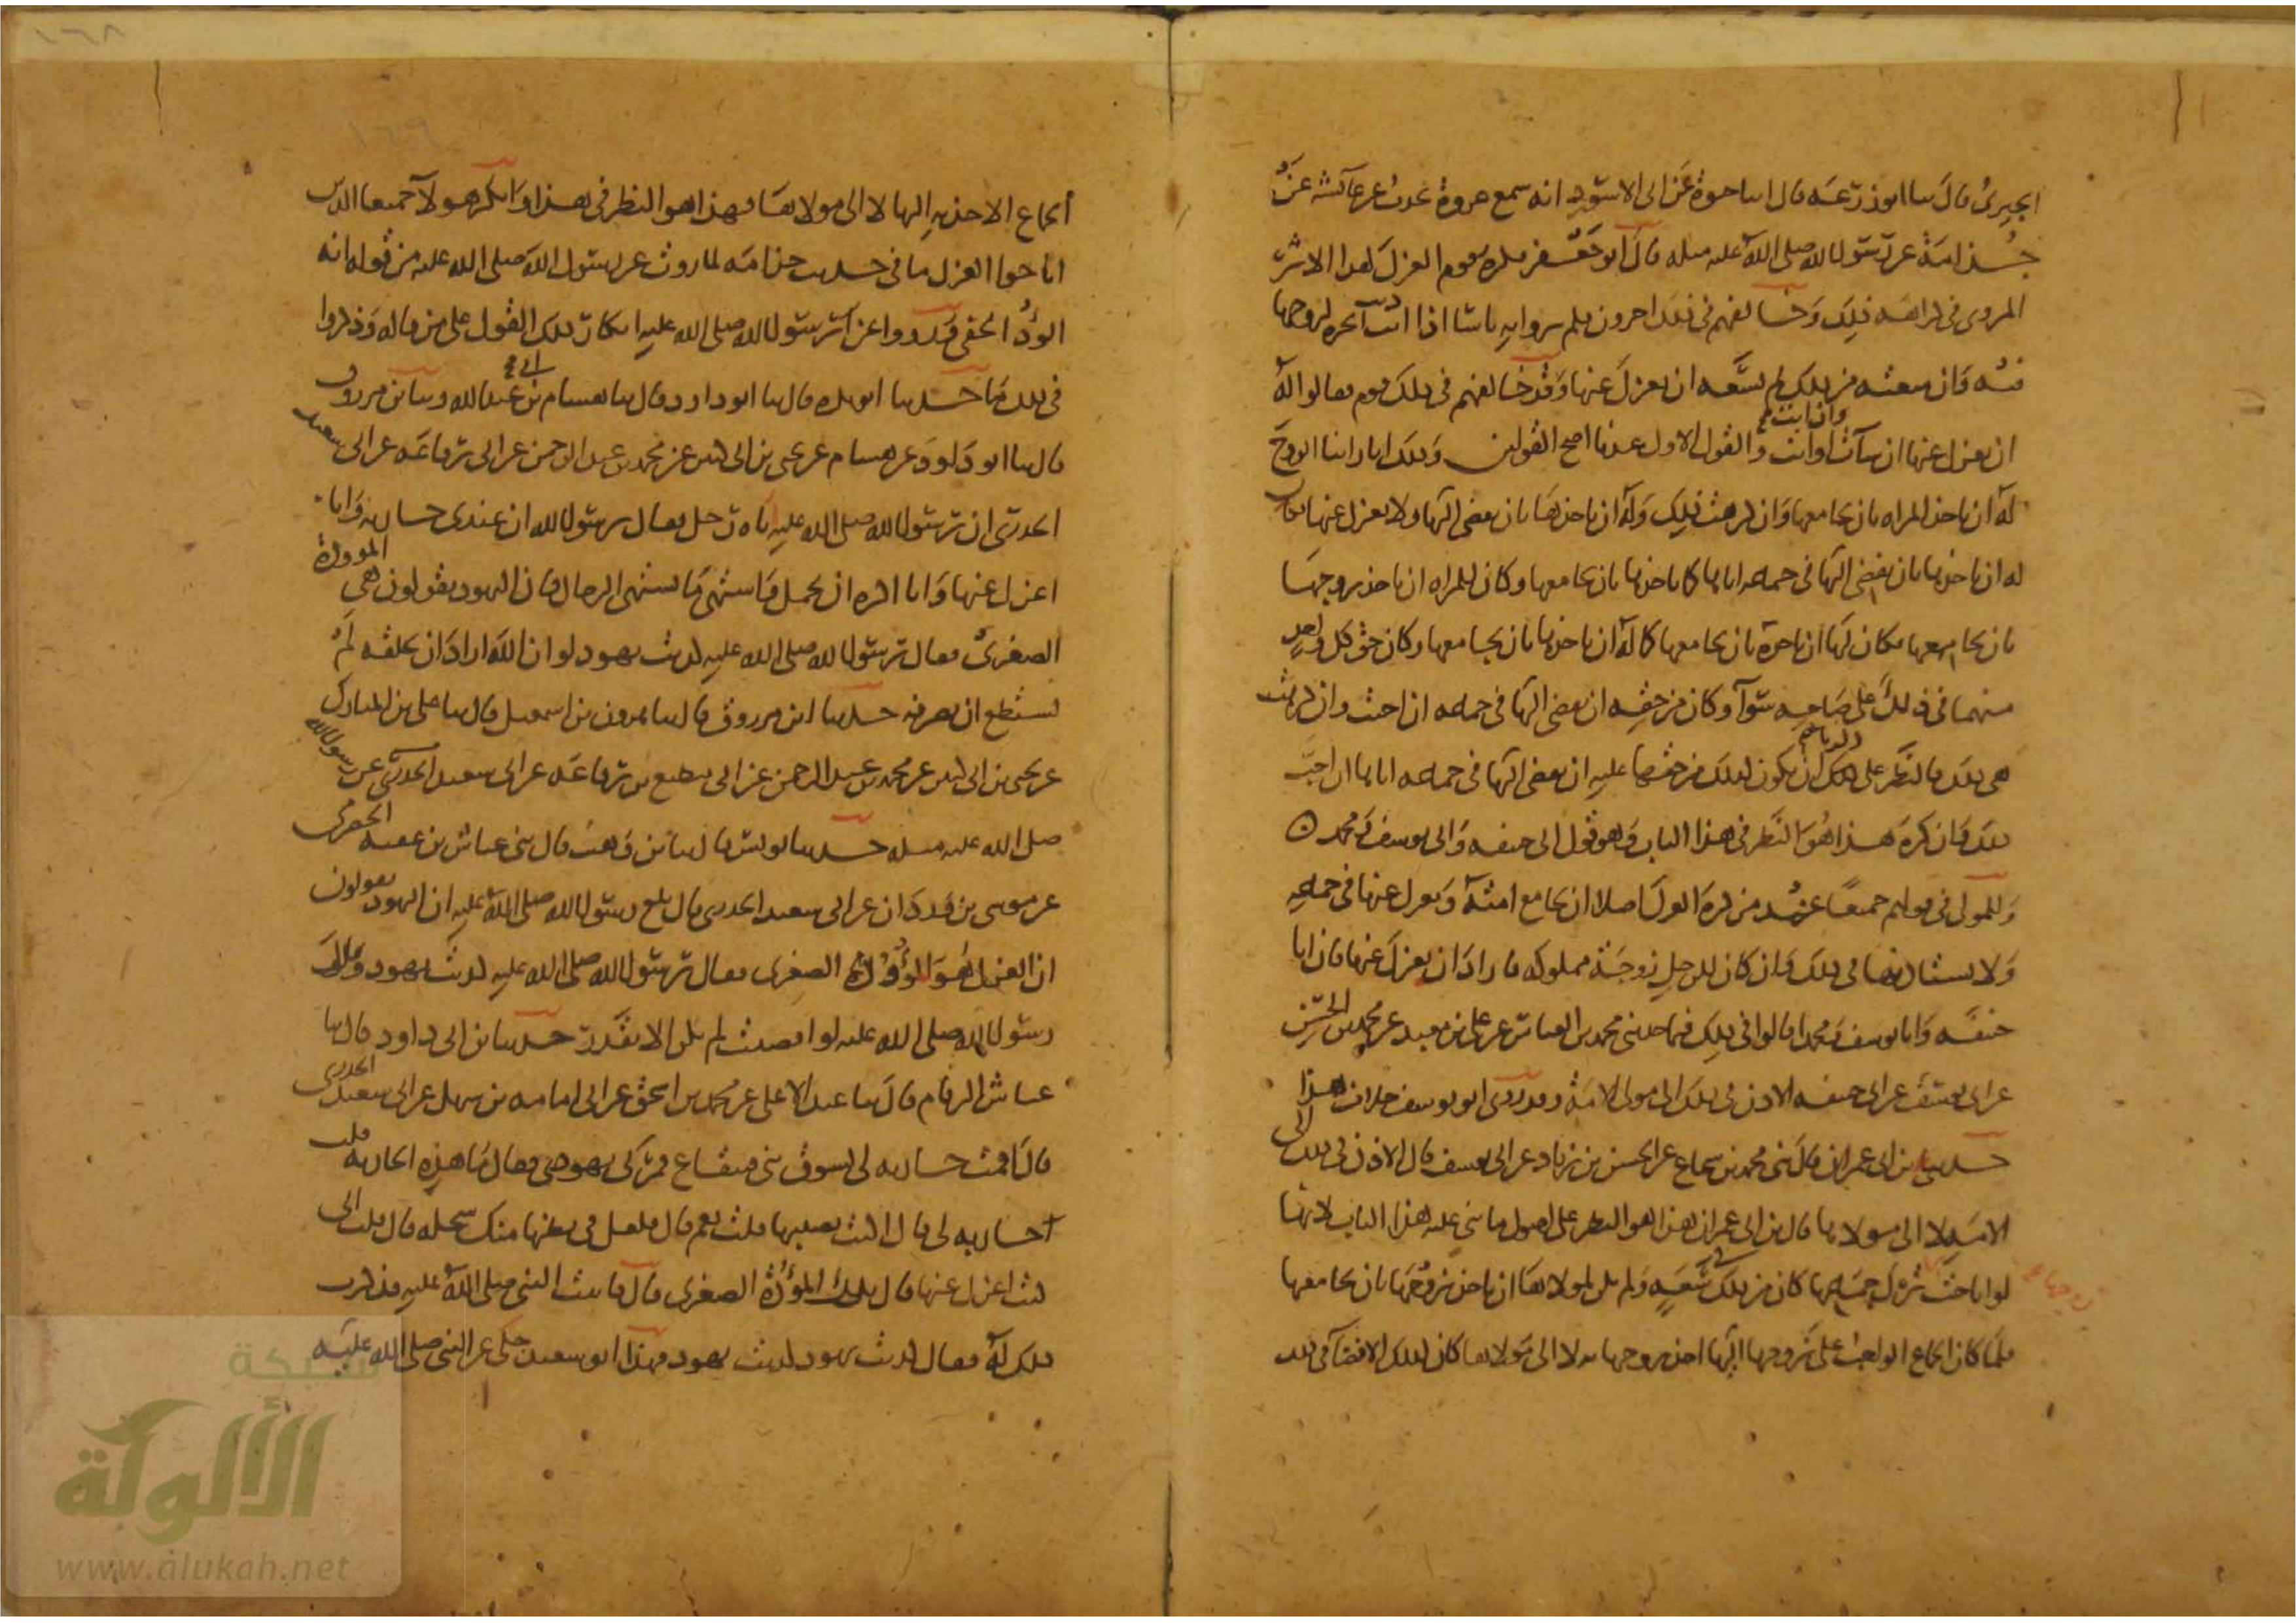 الجيزي قال ثنا ابو زرعة قال انا حيوة عن ابي الاسود انه سمع عروة يحدث عن عائشة عن
جذامة عن رسول الله صلى الله عليه مثله قال ابو جعفر فكره قوم العزل لهذا الاثر
المروي في كراهة ذلك وخالفهم في ذلك اخرون فلم يروا به باسا اذا اذنت الحرة لزوجها
فيه فان منعته من ذلك لم يسعه ان يعزل عنها وقد خالفهم في ذلك قوم فقالوا له
ان يعزل عنها ان شاءت او ابت والقول الاول عندنا اصح القولين وذلك انا راينا الزوج
له ان ياخذ المراة بان يجامعها وان كرهت ذلك وله ان ياخذها بان يفضي اليها ولا يعزل عنها فكان
له ان ياخذها بان يفضي اليها في جماعه اياها كما ياخذها بان يجامعها وكان للمراة ان تاخذ زوجها
بان يجامعها فكان لها ان تاخذه بان يجامعها كما له ان ياخذها بان يجامعها وكان حق كل واحد
منهما في ذلك على صاحبه سواء وكان من حقه ان يفضي اليها في جماعه ان احبت وان كرهت
هي ذلك فالنظر على ذلك ان يكون كذلك من حقها عليه ان يفضي اليها في جماعه اياها ان احب
ذلك وان كره هذا هو النظر في هذا الباب وهو قول ابي حنيفة وابي يوسف ومحمد
وللمولى في قولهم جميعا عند من كره العزل اصلا ان يجامع امته ويعزل عنها في جماعه
ولا يستاذنها في ذلك وان كان للرجل زوجة مملوكة فاراد ان يعزل عنها فان ابا
حنيفة وابا يوسف ومحمدا قالوا في ذلك فيما حدثني محمد بن العباس عن علي بن معبد عن محمد بن الحسن
عن ابي يوسف عن ابي حنيفة الاذن في ذلك الى مولى الامة وقد روي عن ابو يوسف خلاف هذا
حدثني ابن ابي عمران قال ثني محمد بن شجاع عن الحسن بن زياد عن ابي يوسف قال الاذن في ذلك الى
الامة لا الى مولاها قال ابن ابي عمران هذا هو النظر على اصول ما بني عليه هذا الباب لانها
لو اباحت زوجها ترك جماعها كان من ذلك في سعة ولم يكن لمولاها ان ياخذ زوجها بان يجامعها
فلما كان الجماع الواجب على زوجها اليها اخذ زوجها به لا الى مولاها كان كذلك الافضاء في ذلك
الجماع الاخذ به اليها لا الى مولاها فهذا هو النظر في هذا وانكر هولاء جميعا الذين
اباحوا العزل ما في حديث جذامة لما روت عن رسول الله صلى الله عليه من قوله انه
الوأد الخفي ورووا عن رسول الله صلى الله عليه انكار ذلك القول على من قاله وذكروا
في ذلك ما حدثنا ابو بكرة قال ثنا ابو داود قال ثنا هشام بن ابي عبد الله وثنا ابن مرزوق
قال ثنا ابو داود عن هشام عن يحيى بن ابي كثير عن محمد بن عبد الرحمن عن ابي رفاعة عن ابي سعيد
الخدري ان رسول الله صلى الله عليه اتاه رجل فقال يرسول الله ان عندي جارية وانا
اعزل عنها وانا اكره ان تحمل واشتهي ما يشتهي الرجال وان اليهود يقولون هي الموودة
الصغرى فقال رسول الله صلى الله عليه كذبت يهود لو ان الله اراد ان يخلقه لم
تستطع ان تصرفه حدثنا ابن مرزوق قال ثنا هرون بن اسمعيل قال ثنا علي بن المبارك
عن يحيى بن ابي كثير عن محمد بن عبد الرحمن عن ابي مطيع بن رفاعة عن ابي سعيد الخدري عن رسول الله
صلى الله عليه مثله حدثنا يونس قال ثنا ابن وهب قال ثني عياش بن عقبة الحضرمي
عن موسى بن وردان عن ابي سعيد الخدري قال بلغ رسول الله صلى الله عليه ان اليهود يقولون
ان العزل هو الموؤدة الصغرى فقال رسول الله صلى الله عليه كذبت يهود وقال
رسول الله صلى الله عليه لو افضيت لم يكن الا بقدر حدثنا ابن ابي داود قال ثنا
عياش الرقام قال ثنا عبد الاعلى عن محمد بن اسحق عن ابي امامة بن سهل عن ابي سعيد الخدري
قال اقمت جارية لي بسوق بني قينقاع فمر بي يهودي فقال ما هذه الجارية قلت
جارية لي قال اكنت تصيبها قلت نعم قال فلعل في بطنها منك سخلة قال قلت اني
كنت اعزل عنها قال تلك الموؤدة الصغرى قال فاتيت النبي صلى الله عليه فذكرت
ذلك له فقال كذبت يهود كذبت يهود فهذا ابو سعيد حكى عن النبي صلى الله عليه
شبكة
الألوكة
www.alukah.net